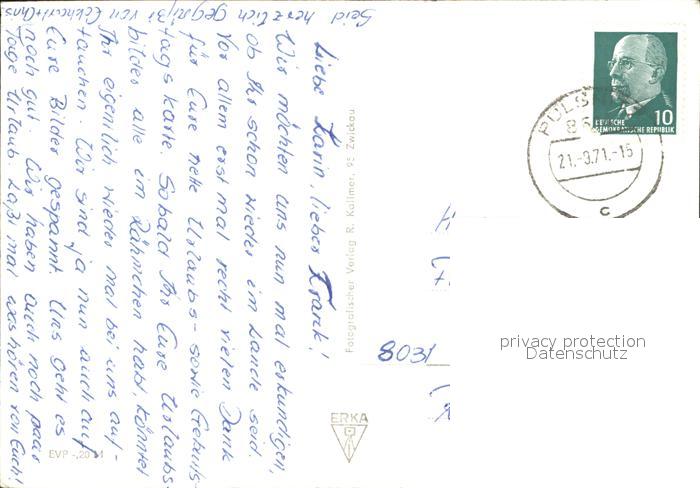 Liebe Karin, lieber Frank!
Wir möchten uns nun mal erkundigen,
ob Ihr schon wieder im Lande seid.
Vor allem erst mal recht vielen Dank
für Eure nette Urlaubs- sowie Geburts-
tagskarte. Sobald Ihr Eure Urlaubs-
bilder alle im Rähmchen habt, könntet
Ihr eigentlich wieder mal bei uns auf-
tauchen. Wir sind ja nun auch auf
Eure Bilder gespannt. Uns geht es
noch gut. Wir haben auch noch paar
Tage Urlaub. Laßt mal was hören von Euch!
Seid herzlich gegrüßt von
EVP -,20 M
Fotografischer Verlag R. Kallmer, 95 Zwickau
ERKA
DEUTSCHE
DEMOKRATISCHE REPUBLIK
10
PULS
85
21.-9.71.-15
c
8031
privacy protection
Datenschutz